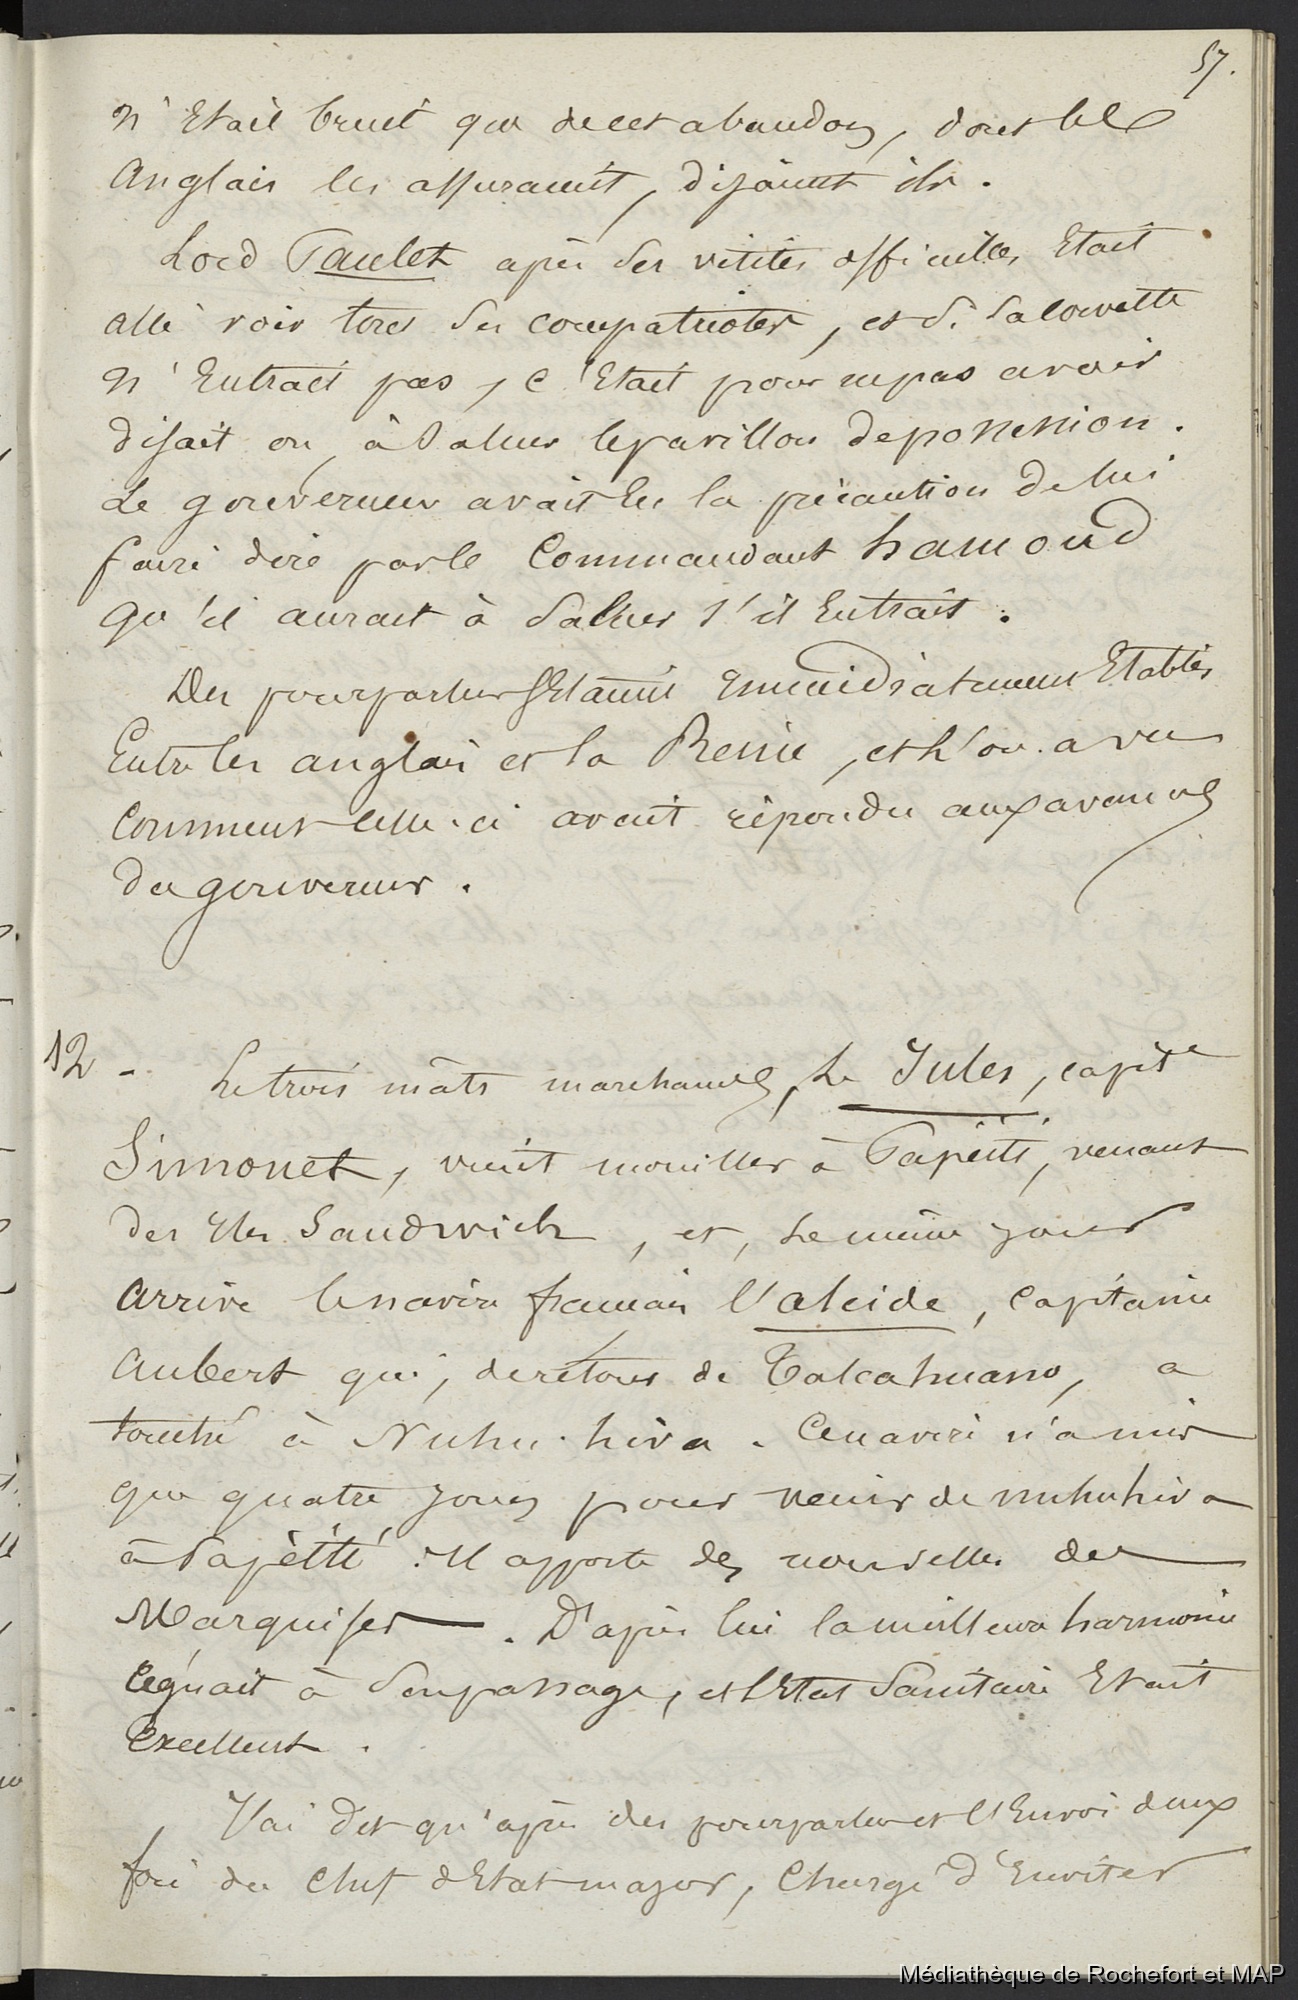 57.
n'Etait bruit que de cet abandon, dont les
Anglais les assuraient, disaient ils.
Lord Paulet après ses visites officielles, Etait
allé voir tous ses compatriotes, et si sa corvette
n'Entrait pas, c'Etait pour ne pas avoir
disait on, à saluer le pavillon de possession.
Le gouverneur avait Eu la précaution de lui
faire dire par le Commandant hamond
qu'il aurait à saluer s'il Entrait.
Des pourparlers s'Etaient Emmédiatement Etablis
Entre les anglais et la Reine, et l'on a vu
comment celle-ci avait répondu aux avances
du gouverneur.
12 - Le trois mâts marchand, Le Jules, capit^e
Simonet, vient mouiller à Papéiti, venant
des Iles Sandwich, et, Le même jour
arrive le navire français l'alcide, Capitaine
Aubert qui, de retour de Talcahuano, a
touché à Nuhu-hiva. Ce navire n'a mis
que quatre jours pour venir de nuhuhiva
à Papéïti. Il apporte des nouvelles des
Marquises. D'après lui la meilleure harmonie
régnait à son passage, et l'Etat Sanitaire Etait
Excellent.
J'ai dit qu'après des pourparlers et l'Envoi deux
fois du Chef d'Etat major, Chargé d'Enviter
Médiathèque de Rochefort et MAP